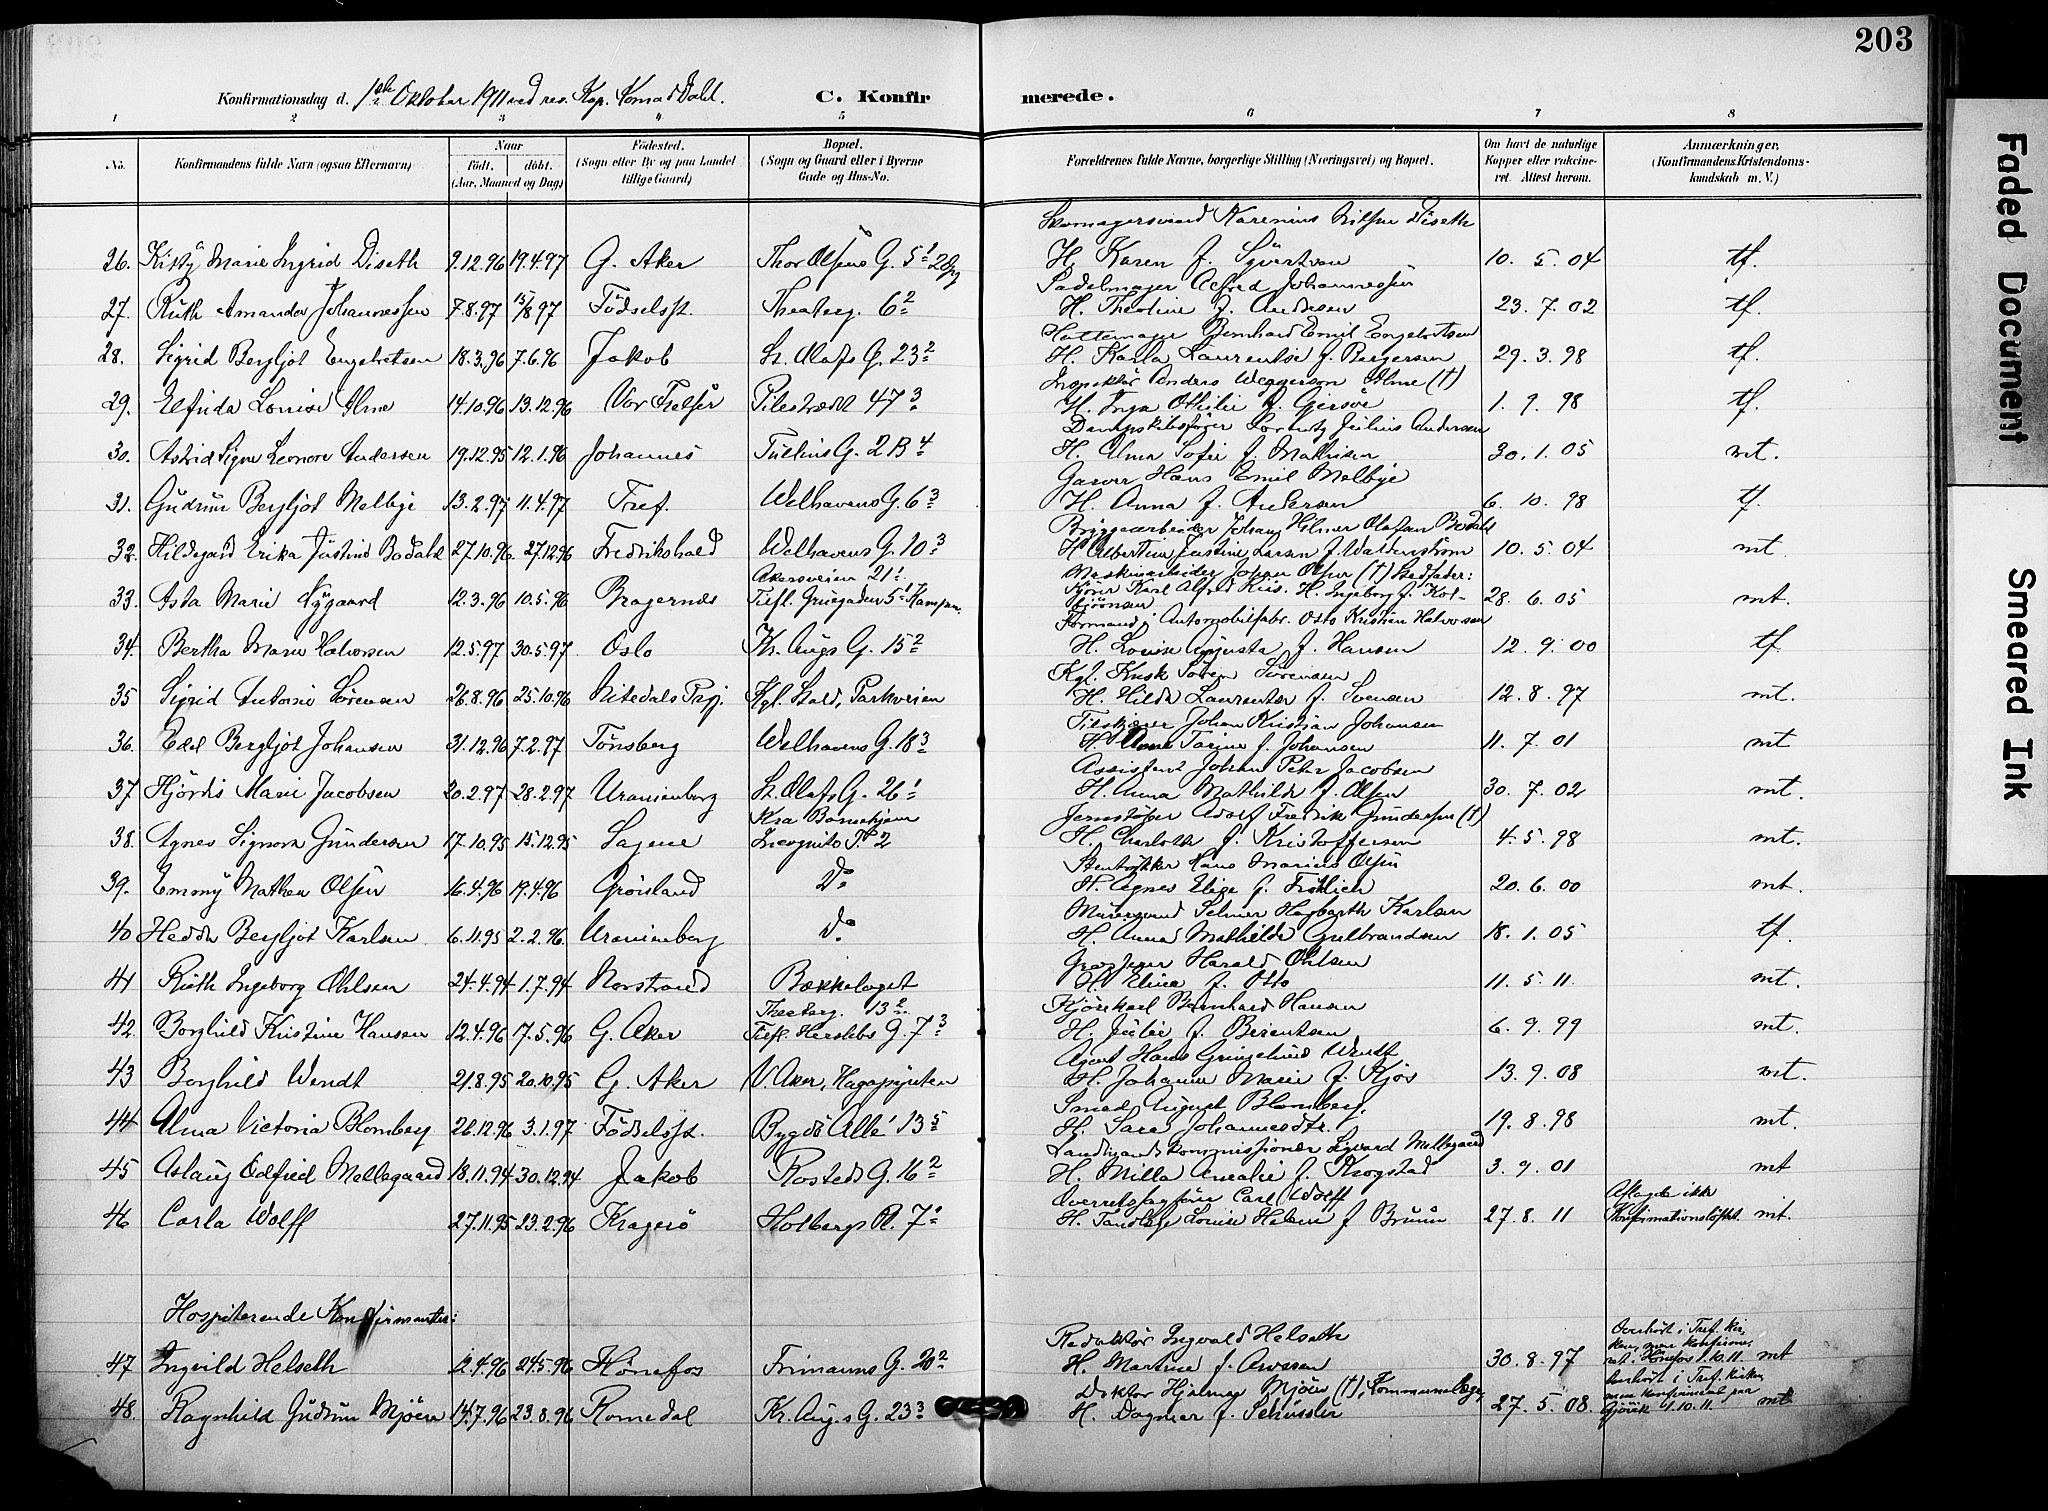 203
Konfirmationsdag d. 1ste Oktober 1911 ved res. Kap. Konrad Dahl. C. Konfirmerede.
1 2 3 4 5 6 7 8
No. Konfirmandens fulde Navn (ogsaa Efternavn) Naar født. døbt. (Aar, Maaned og Dag) Fødested. (Sogn eller By og paa Landet tillige Gaard) Bopæl. (Sogn og Gaard eller i Byerne Gade og Hus-No. Forældrenes fulde Navne, borgerlige Stilling (Næringsvei) og Bopæl. Om havt de naturlige Kopper eller vaccineret. Attest herom. Anmærkninger, (Konfirmandens Kristendomskundskab m. V.)
Skomagersvend Karenius Nilsen Diseth
26. Kitty Marie Ingrid Diseth 9.12.96 19.4.97 G. Aker Thor Olsens G. 5 1 H. Karen f. Syvertsen 10. 5. 04 tf.
Sadelmager Alfred Johannessen
27. Ruth Amanda Johannessen 7.8.97 15/8 97 Fødselsst. Theaterg. 6 2 H. Theoline f. Andersen 23. 7. 02 tf.
Hattemager Bernhard Emil Engebretsen
28. Sigrid Bergljot Engebretsen 18.3.96 7.6.96 Jakob St. Olafs G. 23 2 H. Karla Laurentse f. Bergersen 29. 3. 98 tf.
Inspektør Anders Weggerson Alme (†)
29. Elfrida Louise Alme 14.10.96 13.12.96 Vor Frelser Pilestrædet 47 3 H. Inga Othilie f. Gjersøe 1. 9. 98 tf.
Dampskibsfører Lorentz Julius Andersen
30. Astrid Signe Leonore Andersen 19.12.95 12.1.96 Johannes Tullins G. 2 B 4 H. Alma Sofie f. Mathisen 30. 1. 05 mt.
Garver Hans Emil Melbye
31. Gudrun Bergljot Melbye 13.2.97 11.4.97 Tref. Welhavens G. 6 3 H. Anna f. Andersen 6. 10. 98 tf.
Bryggearbeider Johan Hilmer Olafsen Bodahl
32. Hildegard Erika Justine Bodahl 27.10.96 27.12.96 Fredrikshald Welhavens G. 10 3 H. Albertine Justine Larsen f. Waldenstrøm 10. 5. 04 mt.
Akersveien 21 1 Maskinarbeider Johan Olsen (†) Stedfader:
33. Asta Marie Nygaard 12.3.96 10.5.96 Bragernes Tilfl. Grüegaden 5 1 Kampen. Kjører Karl Alfred Kris. H. Ingeborg f. Kolbjørnsen 28. 6. 05 mt.
Formand i Automobilfabr. Otto Kristian Halvorsen
34. Bertha Marie Halvorsen 12.5.97 30.5.97 Oslo Kr. Augs G. 15 2 H. Louise Augusta f. Hansen 12. 9. 00 tf
Kgl. Kusk Søren Sørensen
35 Sigrid Antonie Sørensen 26.8.96 25.10.96 Nitedals Prgj. Kgl. Stald, Parkveien H. Hilda Laurentse f. Svensen 12. 8. 97 mt.
Tilskjærer Johan Kristian Johansen
36. Edel Bergljot Johansen 31.12.96 7.2.97 Tønsberg Welhavens G. 18 3 H. Anna Tarine f. Johansen 11. 7. 01 mt
Assistent Johan Peter Jacobsen
37 Hjørdis Marie Jacobsen 20.2.97 28.2.97 Uranienborg St. Olafs G. 26 1 H. Anna Mathilde f. Olsen 30. 7. 02 mt.
Kra Børnehjem Jernstøber Adolf Fredrik Gundersen (†)
38. Agnes Signora Gundersen 17.10.95 15.12.95 Sagene Incognito P. 2 H. Charlotte f. Kristoffersen 4. 5. 98 mt.
Stentrykker Hans Marius Olsen
39. Emmy Mathea Olsen 16.4.96 19.4.96 Grønland Do H. Agnes Elise f. Frölich 20. 6. 00 mt.
Murersvend Selmer Hagbarth Karlsen
40 Hedda Bergljot Karlsen 6.11.95 2.2.96 Uranienborg do H. Anna Mathilde Gulbrandsen 18. 1. 05 tf.
Grosserer Harald Ohlsen
41 Ruth Ingeborg Ohlsen 24.4.94 1.7.94 Norstrand Bækkelaget H. Elina f. Otto 11. 5. 11. mt.
Theaterg. 13 2 Kjørekarl Bernhard Hansen
42. Borghild Kristine Hansen 12.4.96 17.5.96 G. Aker Tilfl. Herslebs G. 7 3 H. Julie f. Berentsen 6. 9. 99 mt.
Agent Hans Wendt
43 Borghild Wendt 21.8.95 20.10.95 G. Aker V. Aker, H. Johanne Marie f. Kjøs 13. 9. 08 mt.
Smed August Blomberg,
44 Alma Victoria Blomberg 26.12.96 3.1.97 Fødselsst. Bygdø Allé 13 5 H. Sara Johannesdtr. 19. 8. 98 mt.
Landmandskommissionær Sigvard Mellegaard
45 Aslaug Odfrid Mellegaard 18.11.94 30.12.94 Jakob Rosteds G. 16 2 H. Milla Amalie f. Krogstad 3. 9. 01 mt
Overretssagfører Carl Wolff Aflagde ikke
46 Carla Wolff 27.11.95 23.2.96 Kragerø Holbergs Pl. 7 H. Louise Helene f Bruun 27. 8. 11 Konfirmationsløftet. mt.
Hospiterende Konfirmanter:
Redaktør Ingvald Helseth Overhørt i Tref. kirken, men konfirmeret
47 Ingrild Helseth 12.4.96 24.5.96 Hønefos Frimanns G. 20 2 H. Martine f. Arnesen 30. 8. 97 i Hønefos 1.10.11. mt
Doktor Hjalmar Mjøen (†), Kommunelæge, Overhørt i Tref. Kirken,
48. Ragnhild Gudrun Mjøen 14.7.96 23.8.96 Romedal Kr. Aug.s G. 23 3 H. Dagmar f. Schüssler 27. 5. 08. men konfirmeret paa Gjøvik 1.10.11. mt
Faded Document
Smeared Ink